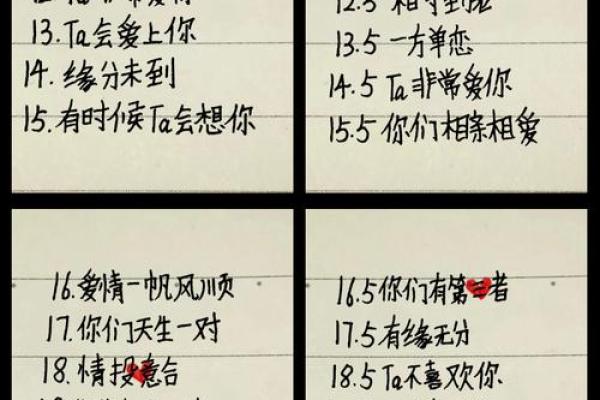 13.Ta会爱上你
14.缘分未到
15.有时候Ta会想你
12.5 相守到老
13.5 一方单恋
14.5 Ta非常爱你
15.5 你们相亲相爱
16.爱情一帆风顺
17.你们天生一对
18.情投意合
16.5 你们有第三者
17.5 有缘无分
18.5 Ta不喜欢你